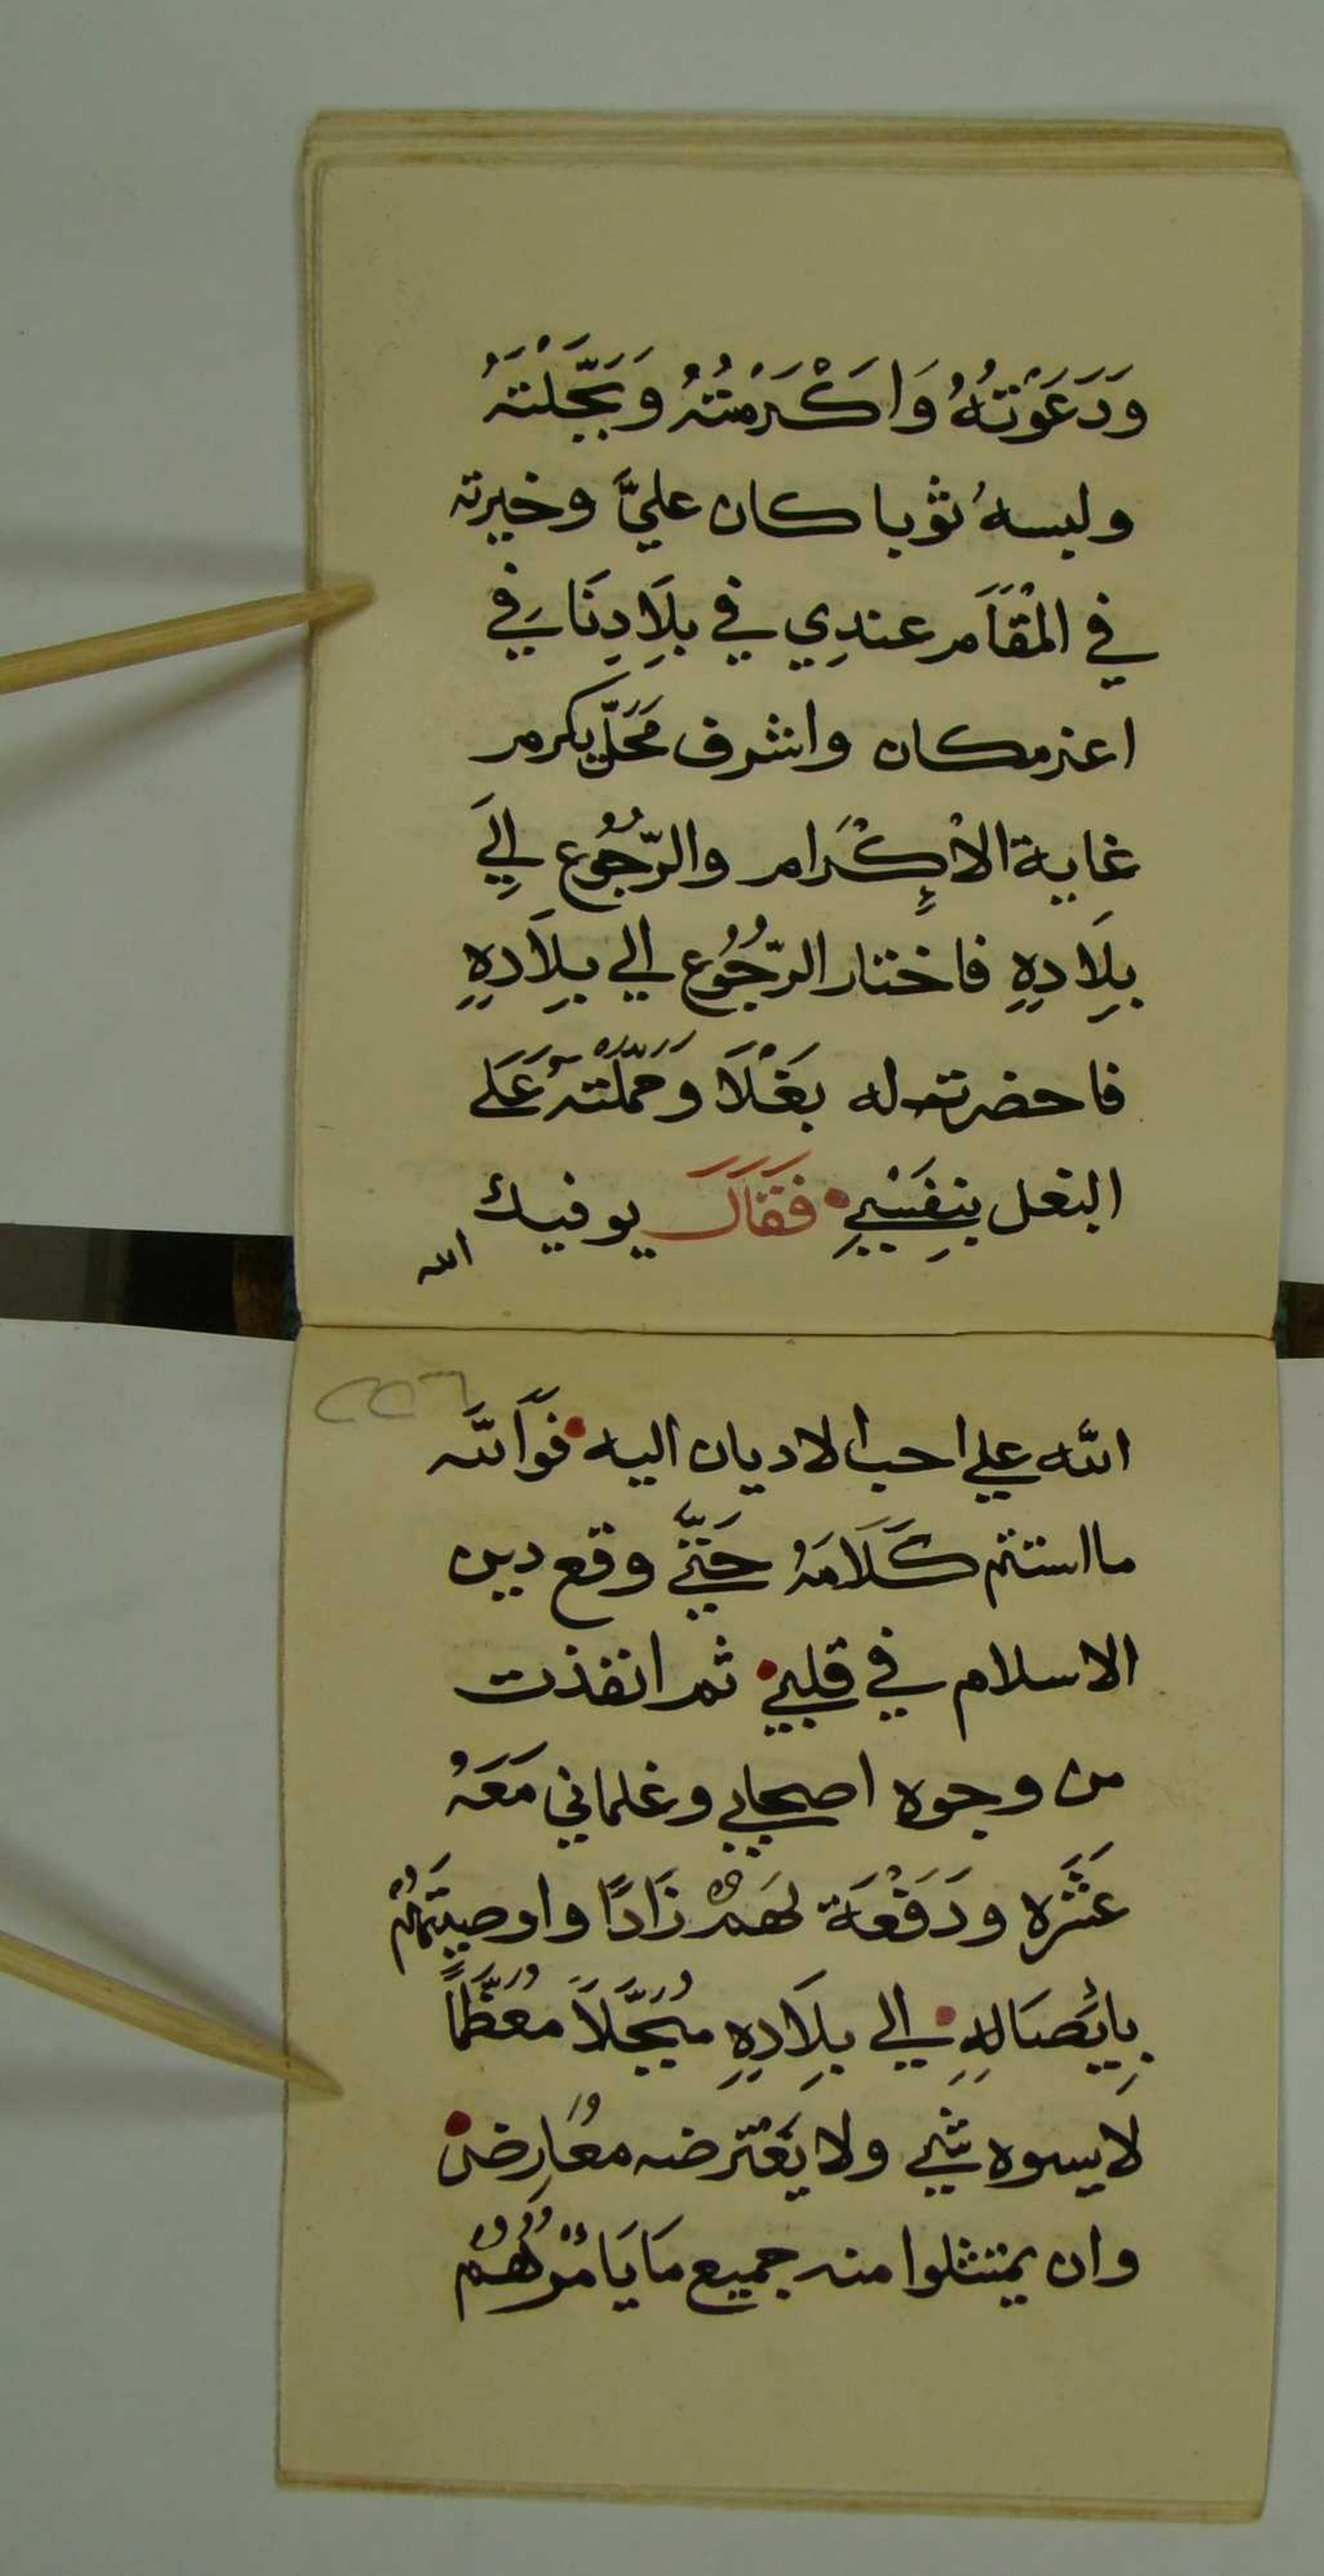 وَدَعَوْتُهُ وَاَكْرَمْتُهُ وَبَجَّلْتَهُ
ولبسهُ ثوبا كان عليَّ وخيرته
في المْقَامر عندِي في بلَادِنَا في
اعز مكان واشرف مَحَلّ يكرمر
غاية الاْكْرَامر والرّجُوُع الِيَ
بِلَادهِ فاختار الرّجُوُع الي بِلَادِهِ
فاحضرت له بَغْلَا وَحَمّلْتهُ عَلَى
البغل بنِفَسْيِ فَقَالَ يوفيك
الله
٢٥٦
الله علي احب الاديان اليه فَوَاَللّه
ما استتم كَلَامَهُ حَتّيَ وقع دين
الاسلام في قلبي ثم انفذت
من وجوه اصحابي وغلماني مَعَهُ
عَشَره ودَفَعْةَ لهَمُْ زَادًا واوصيتَهُمُْ
بِايْصَالِهِ الي بِلَادِهِ مُبَجَّلَاً مُعَظَّمَاً
لا يسوه شي ولا يَعْترضه مُعَارِض
وان يمتثلوا منه جميع مَا يَامْرُهُمُْ